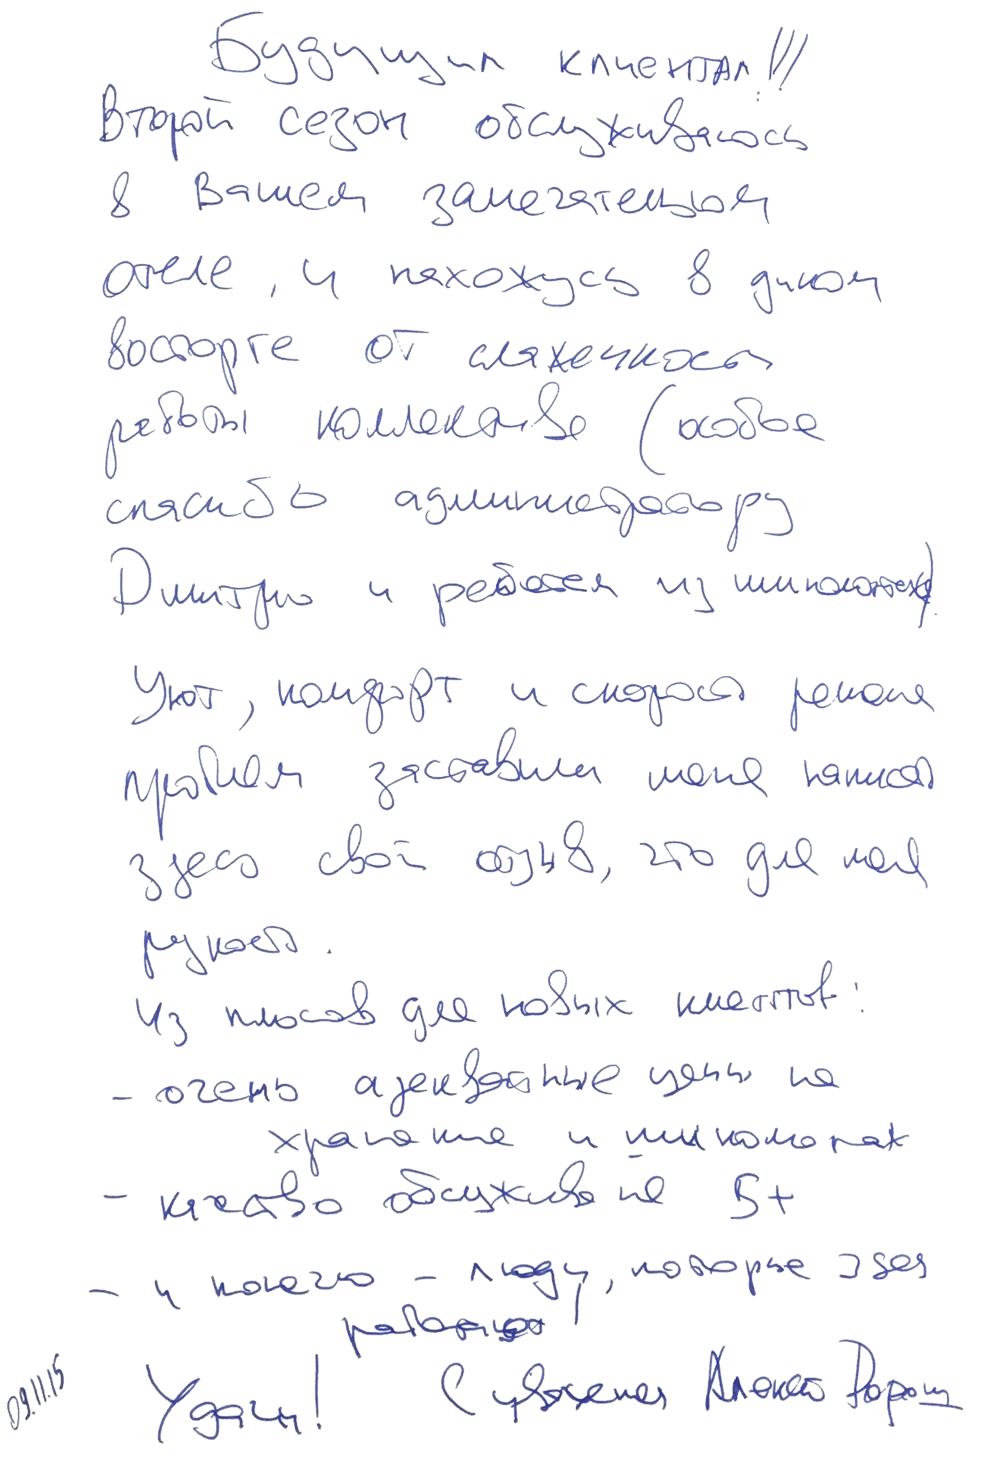 Будущим клиентам!!!
Второй сезон обслуживаюсь
в Вашем замечательном
отеле, и нахожусь в диком
восторге от слаженности
работы коллектива (особое
спасибо администратору
Дмитрию и ребятам из шиномонтажа)
Уют, комфорт и скорость решения
проблем заставили меня написать
здесь свой отзыв, что для меня
редкость.
Из плюсов для новых клиентов:
- очень адекватные цены на
хранение и шиномонтаж
- качество обслуживания 5+
- и конечно - люди, которые здесь
работают!
Удачи! С уважением Алексей
09.11.15